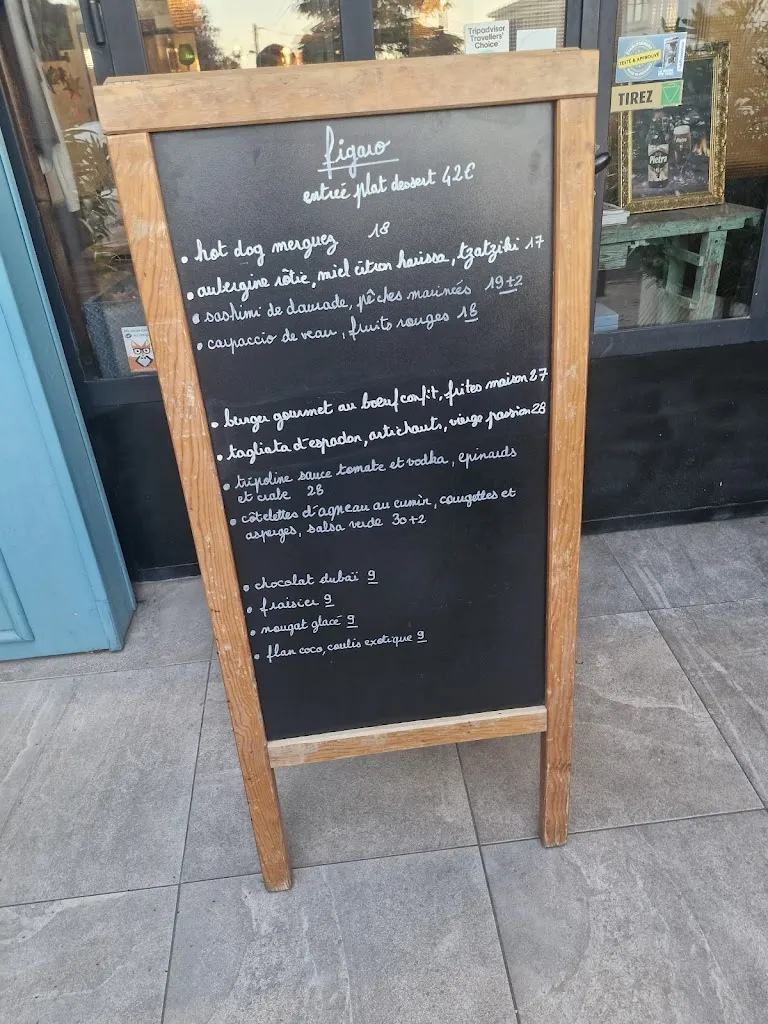 Tripadvisor
Travellers'
Choice
TESTÉ & APPROUVÉ
TIREZ
Pietra
figaro
entreé plat dessert 42€
• hot dog merguez 18
• aubergine rôtie, miel citron harissa, tzatziki 17
• sashimi de daurade, pêches marinées 19+2
• carpaccio de veau, fruits rouges 18
• burger gourmet au boeuf confit, frites maison 27
• tagliata d'espadon, artichauts, vierge passion 28
• tripoline sauce tomate et vodka, epinards
et crabe 28
• côtelettes d'agneau au cumin, courgettes et
asperges, salsa verde 30+2
• chocolat dubaï 9
• fraisier 9
• nougat glacé 9
• flan coco, coulis exotique 9